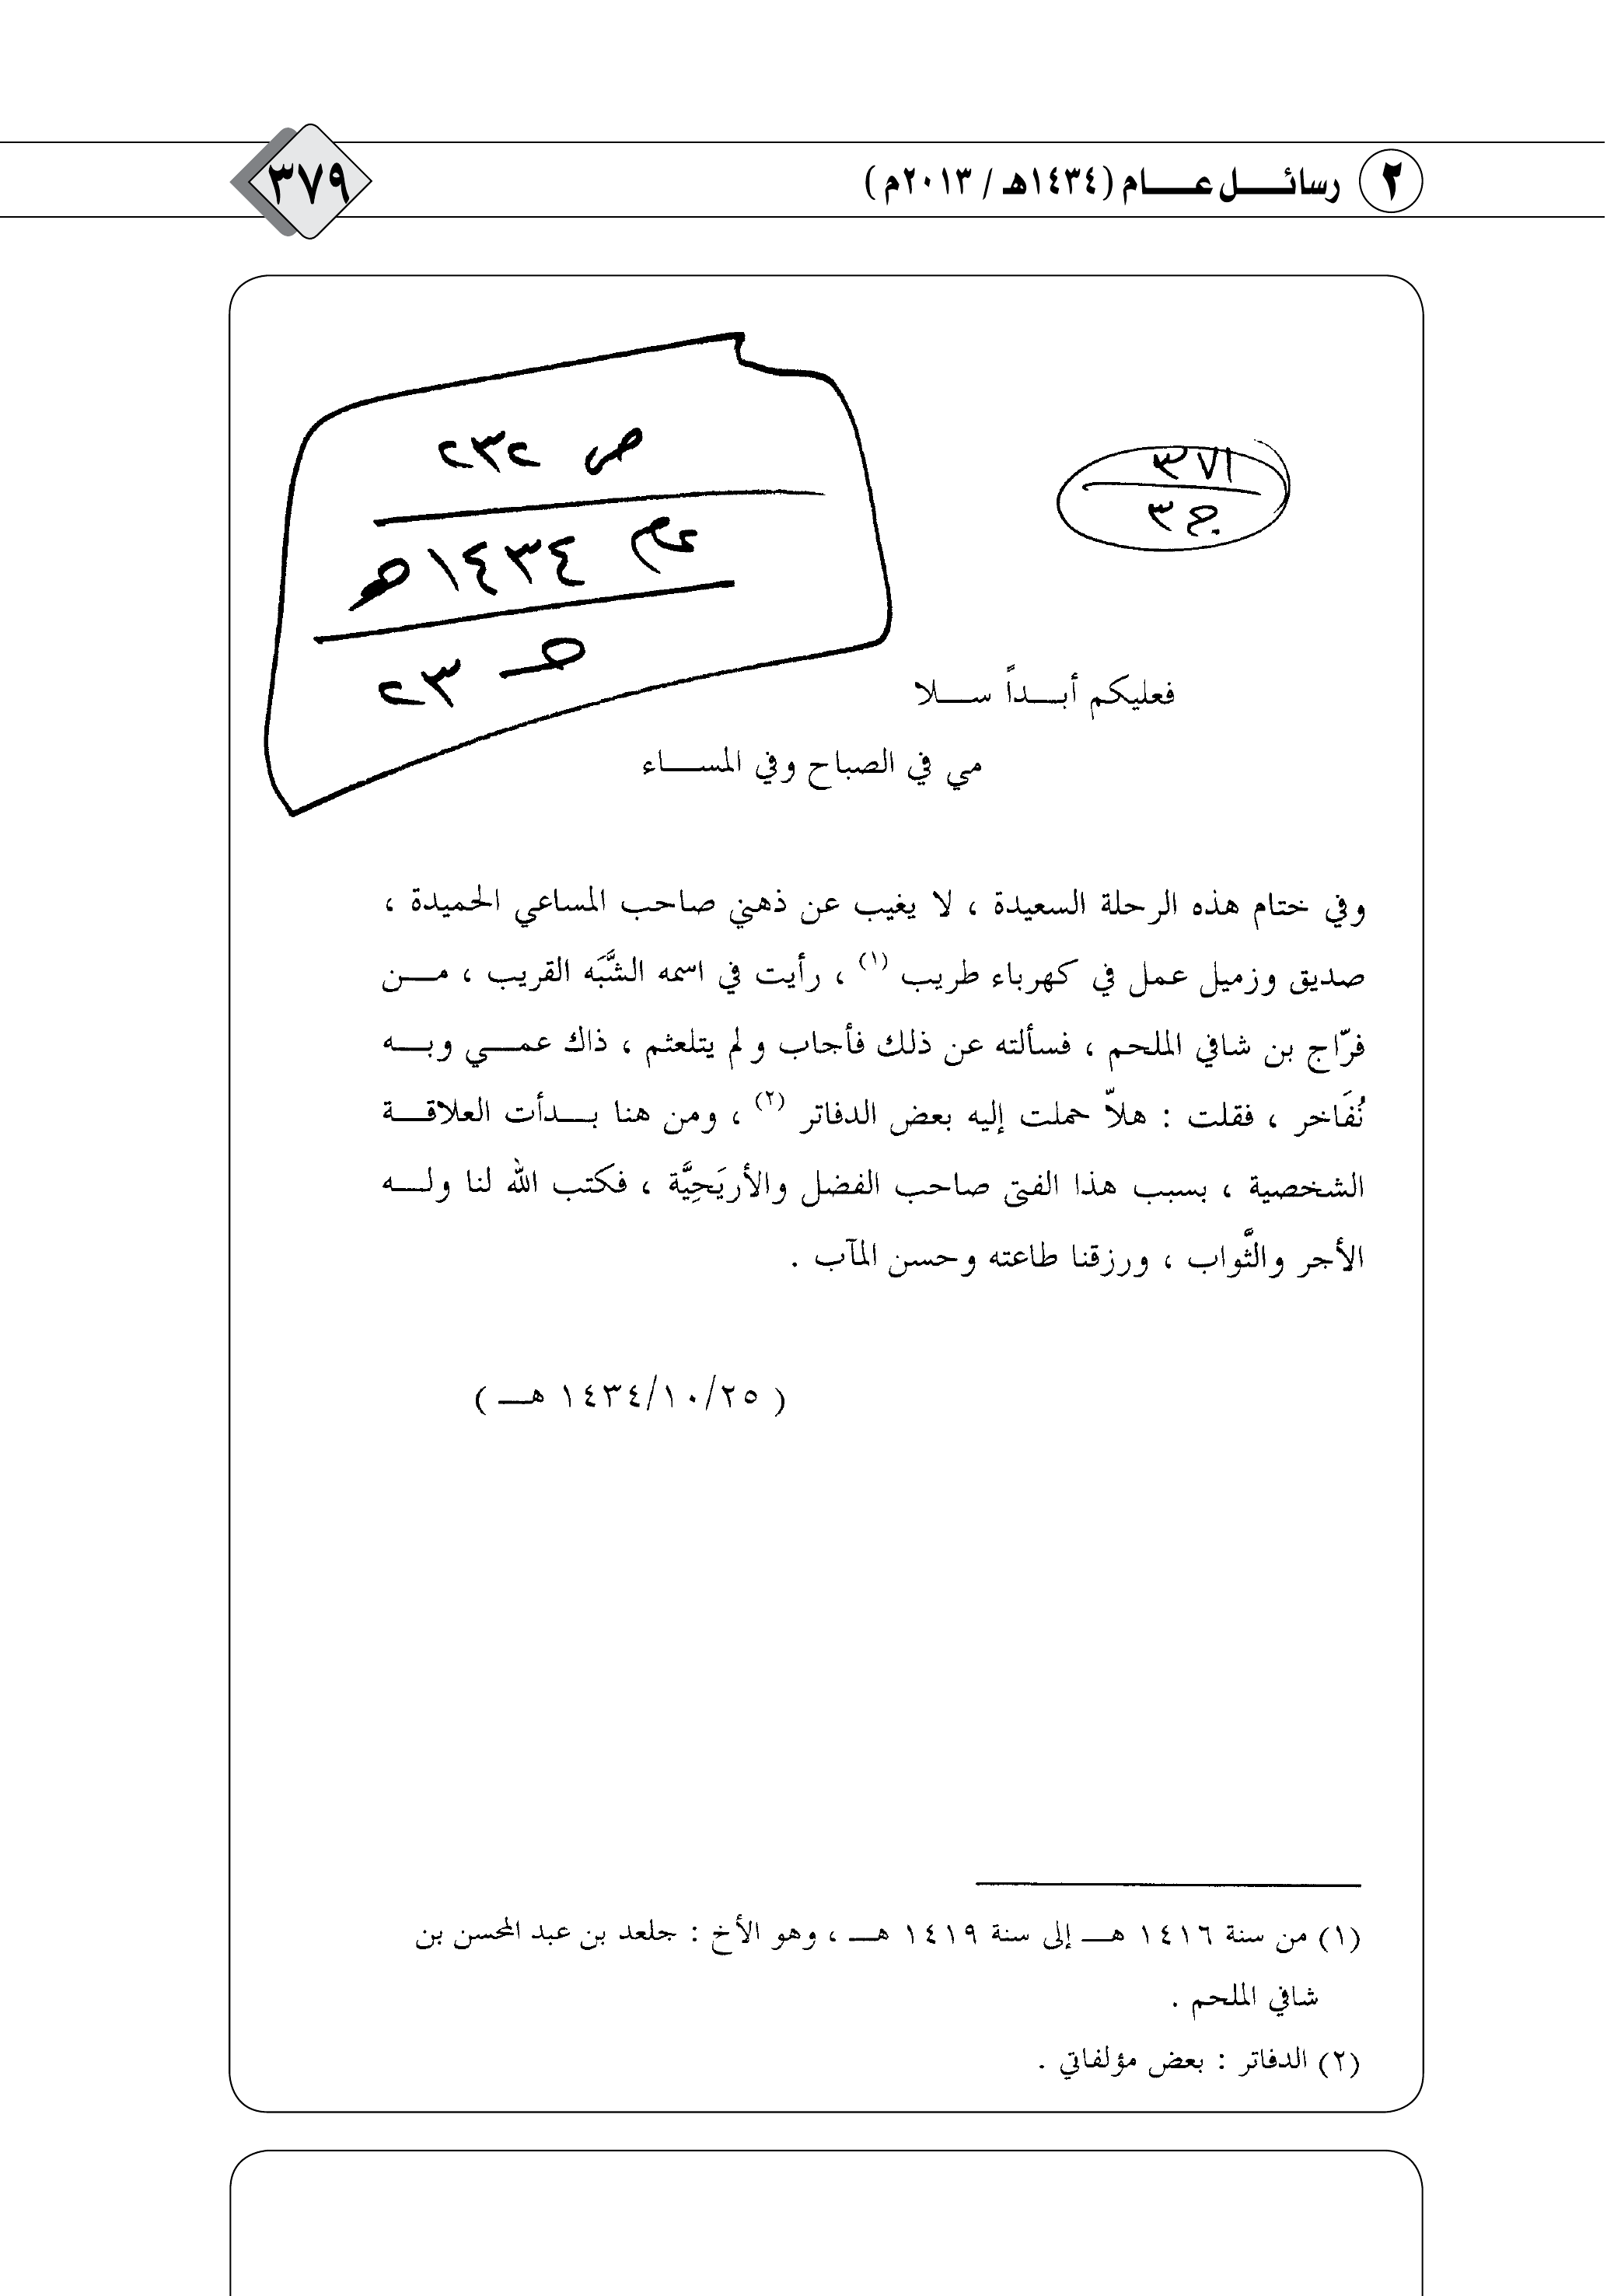 ٢ رسائـــل عـــــام (١٤٣٤هـ / ٢٠١٣م)
٣٧٩
٣٧١
ج ٣
ص ٢٣٢
عام ١٤٣٤هـ
صـ ٢٣
فعليكم أبـــداً ســـلا
مي في الصباح وفي المســـاء
وفي ختام هذه الرحلة السعيدة ، لا يغيب عن ذهني صاحب المساعي الحميدة ،
صديق وزميل عمل في كهرباء طريب (١) ، رأيت في اسمه الشَّبَه القريب ، مـــن
فرّاج بن شافي الملحم ، فسألته عن ذلك فأجاب و لم يتلعثم ، ذاك عمـــي وبـــه
نُفَاخر ، فقلت : هلاّ حملت إليه بعض الدفاتر (٢) ، ومن هنا بـــدأت العلاقـــة
الشخصية ، بسبب هذا الفتى صاحب الفضل والأريَحِيَّة ، فكتب الله لنا ولـــه
الأجر والثَّواب ، ورزقنا طاعته وحسن المآب .
( ١٤٣٤/١٠/٢٥ هـــ )
(١) من سنة ١٤١٦ هـــ إلى سنة ١٤١٩ هـــ ، وهو الأخ : جلعد بن عبد المحسن بن
شافي الملحم .
(٢) الدفاتر : بعض مؤلفاتي .